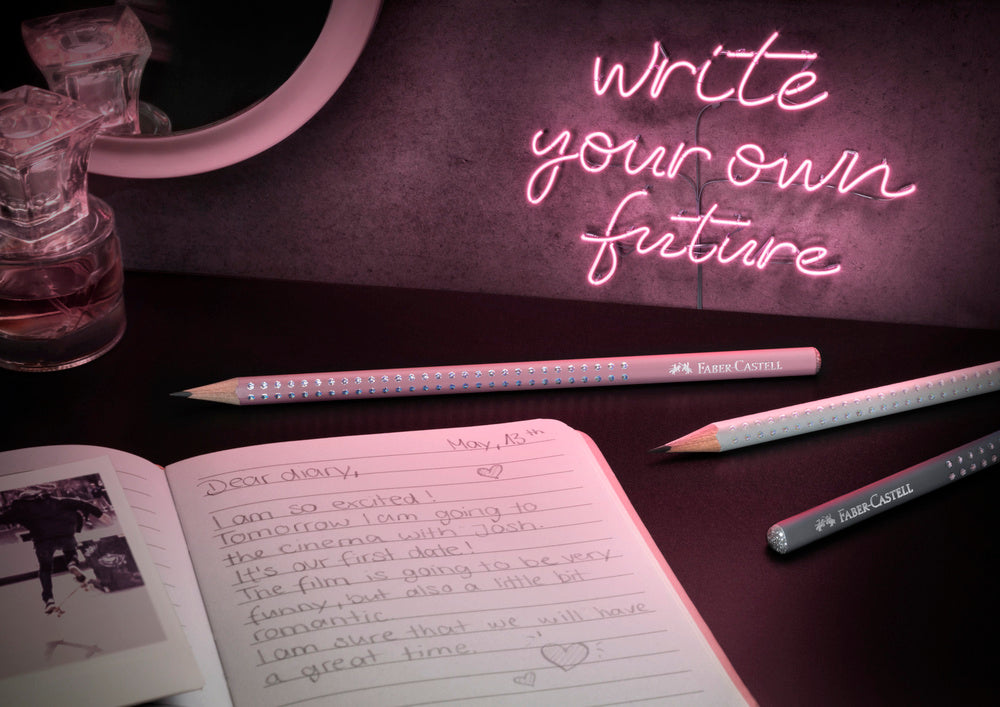 write
your own
future
FABER-CASTELL
FABER-CASTELL
May, 13th
Dear diary,
I am so excited!
Tomorrow I am going to
the cinema with Josh.
It's our first date!
The film is going to be very
funny, but also a little bit
romantic.
I am sure that we will have
a great time.